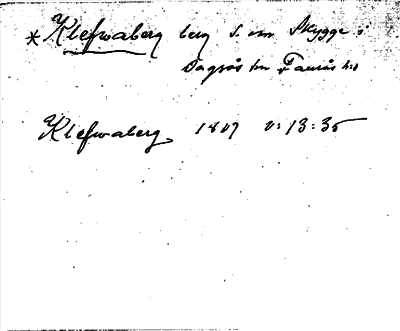 * Klefwaberg berg S. om Skygge i
Dagsås sn Faurås hd
Klefwaberg 1807 v: 13: 35